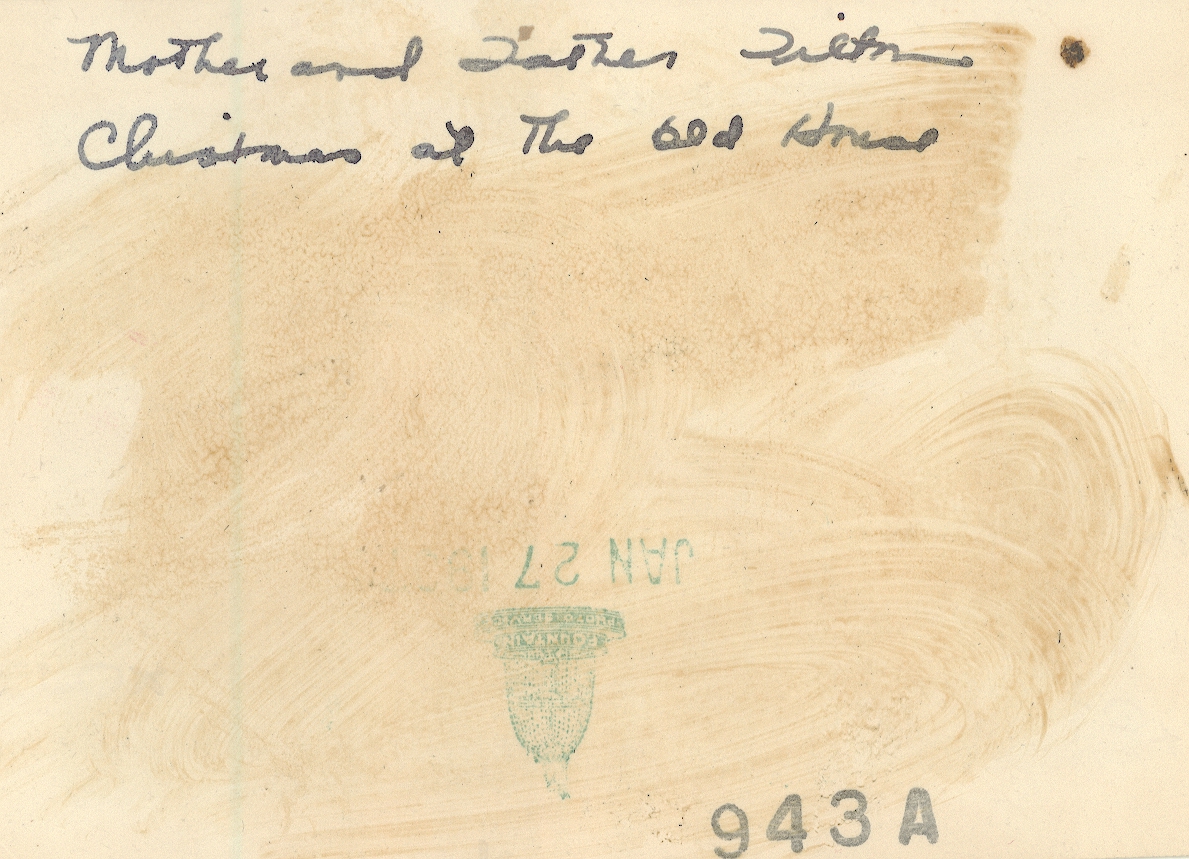 Mother and Father Tilton
Christmas at The Old House
JAN 27
PHOTO SERVICE
FOUNTAIN
943A